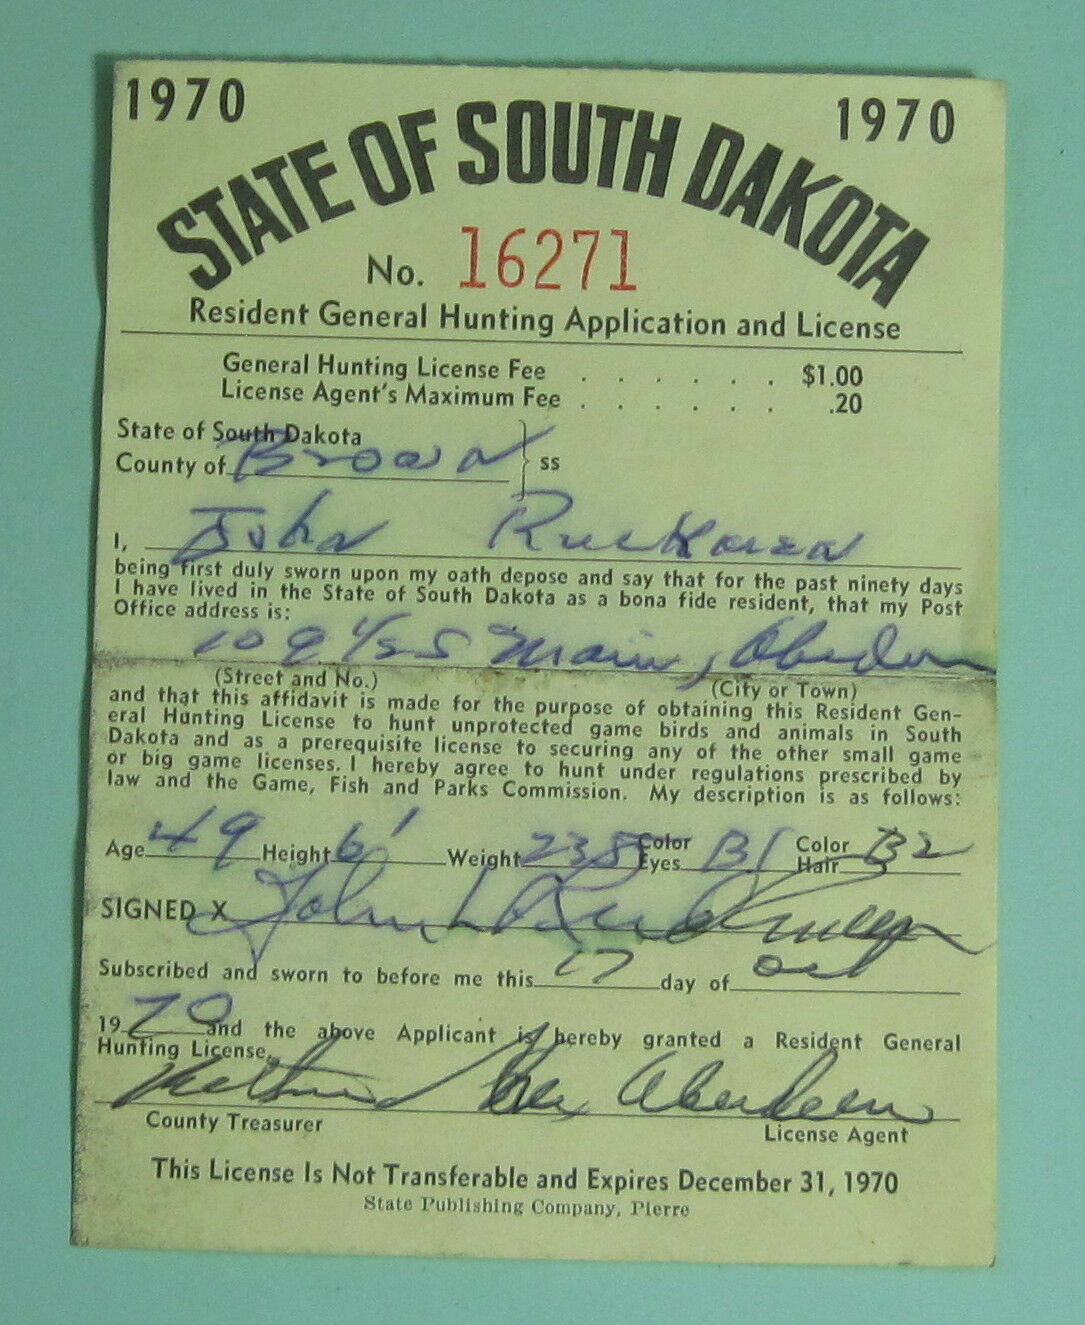 1970 1970
STATE OF SOUTH DAKOTA
No. 16271
Resident General Hunting Application and License
General Hunting License Fee . . . . . . $1.00
License Agent's Maximum Fee . . . . . . .20
State of South Dakota
County of Brown } ss
I, John
being first duly sworn upon my oath depose and say that for the past ninety days
I have lived in the State of South Dakota as a bona fide resident, that my Post
Office address is:
109 1/2 S Main, Aberdeen
(Street and No.) (City or Town)
and that this affidavit is made for the purpose of obtaining this Resident Gen-
eral Hunting License to hunt unprotected game birds and animals in South
Dakota and as a prerequisite license to securing any of the other small game
or big game licenses. I hereby agree to hunt under regulations prescribed by
law and the Game, Fish and Parks Commission. My description is as follows:
Age 49 Height 6' Weight 238 Color Eyes Bl Color Hair
SIGNED X John
Subscribed and sworn to before me this 17 day of Oct
1970 and the above Applicant is hereby granted a Resident General
Hunting License.
Aberdeen
County Treasurer License Agent
This License Is Not Transferable and Expires December 31, 1970
State Publishing Company, Pierre